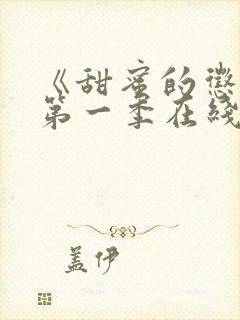 《甜蜜的惩
第一季在线
盖伊